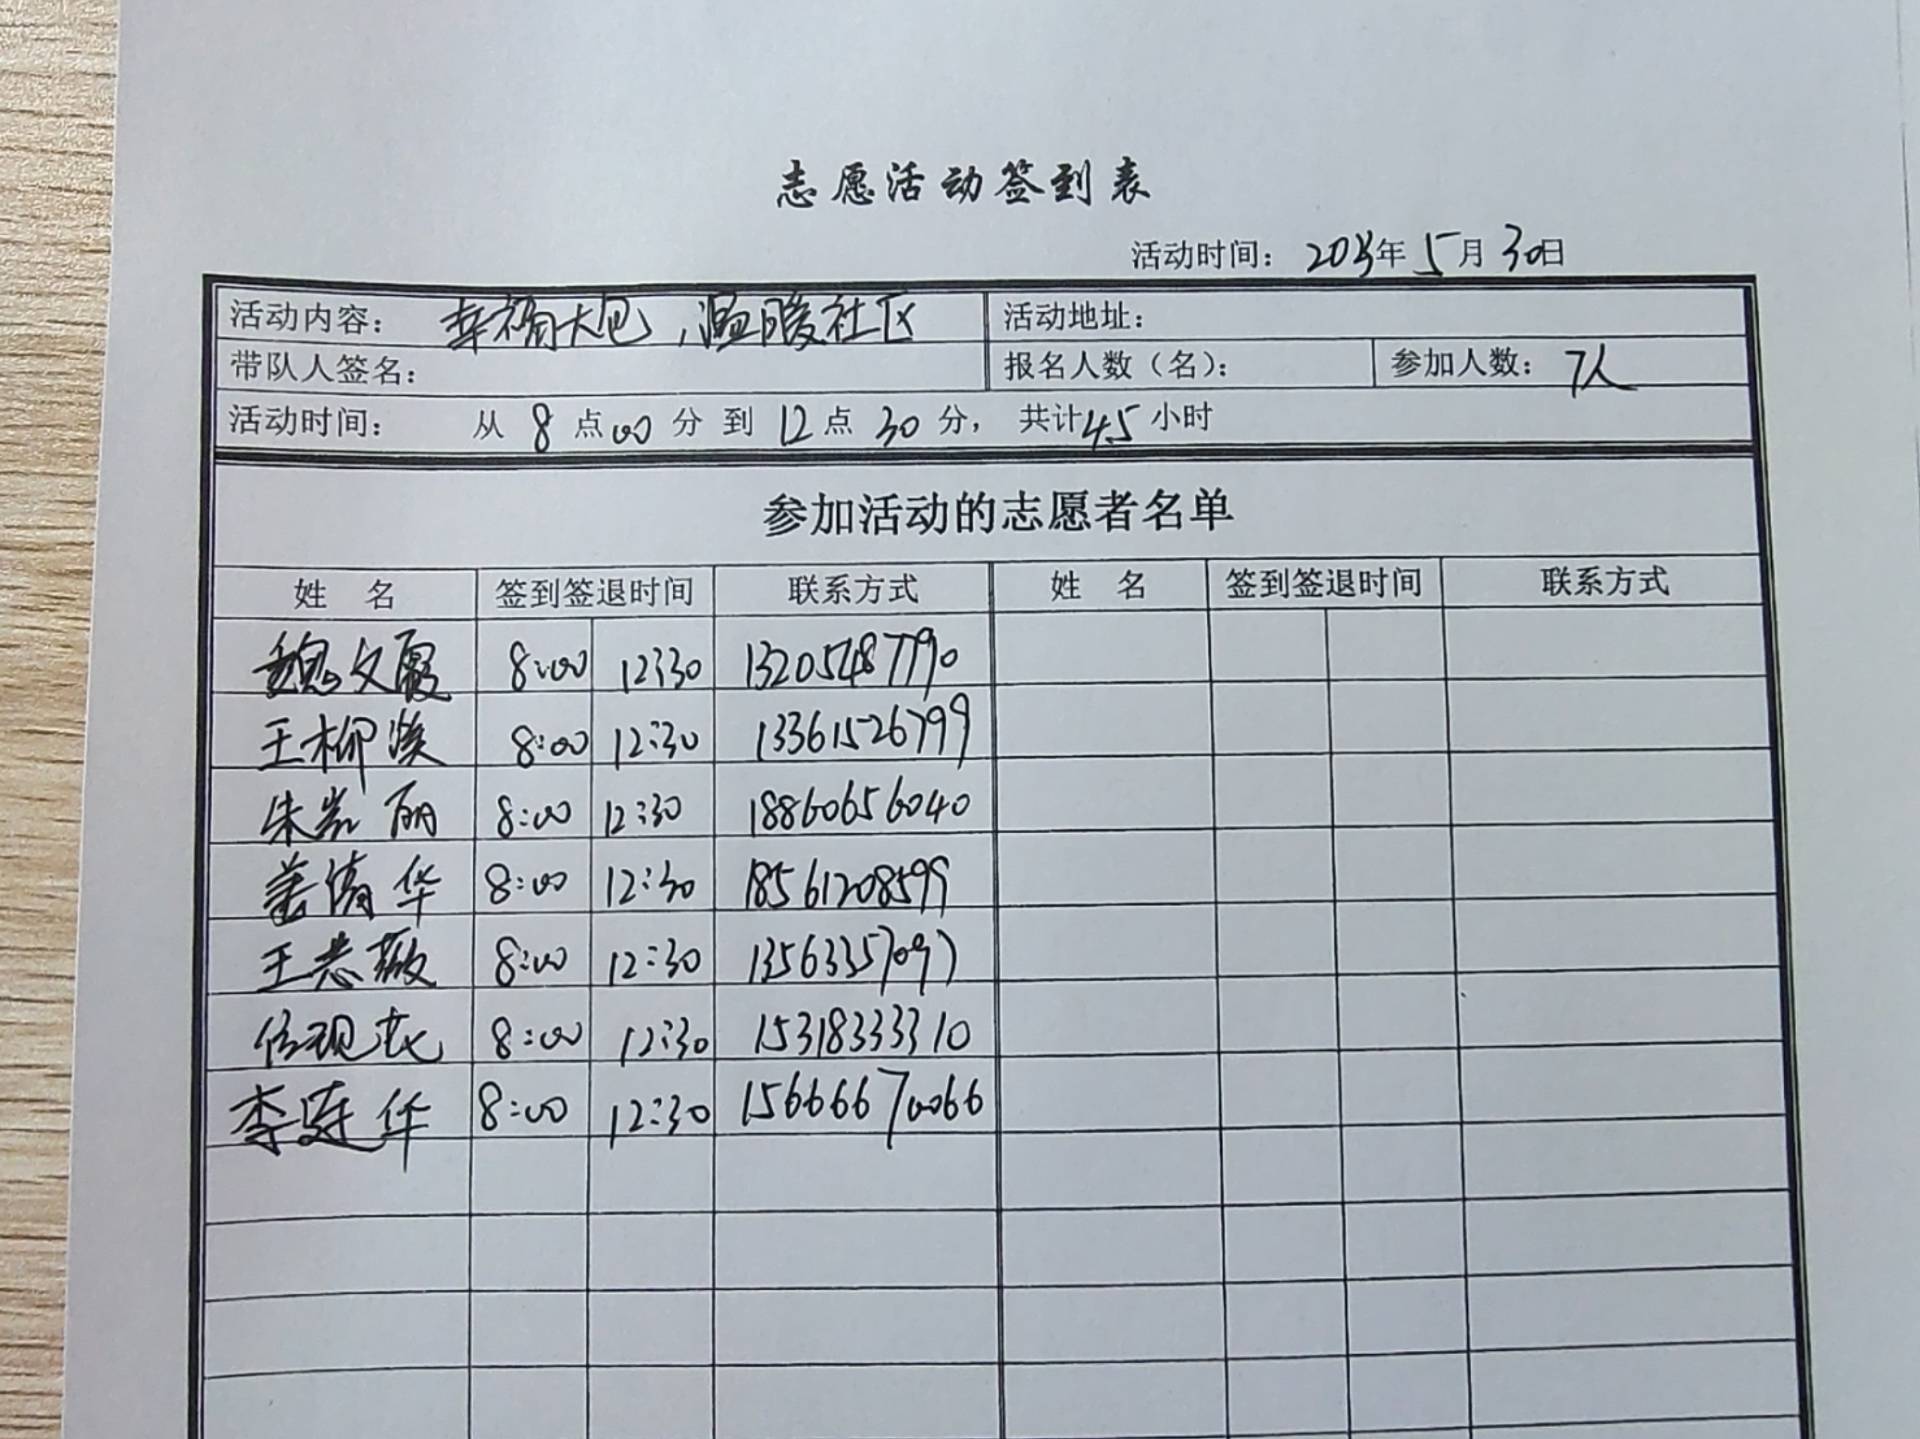 志愿活动签到表
活动时间: 年 5 月 30 日
活动内容: 幸福大包,温暖社区 活动地址:
带队人签名: 报名人数(名): 参加人数: 7人
活动时间: 从 8 点 00 分 到 12 点 30 分, 共计 4.5 小时
参加活动的志愿者名单
姓 名 签到签退时间 联系方式 姓 名 签到签退时间 联系方式
魏文霞 8:00 12:30 13205487790
王柳溪 8:00 12:30 13361526799
朱岩丽 8:00 12:30 18860656040
姜倩华 8:00 12:30 18561208599
王志敬 8:00 12:30 13563357097
伍现花 8:00 12:30 15318333310
李廷华 8:00 12:30 15666670066